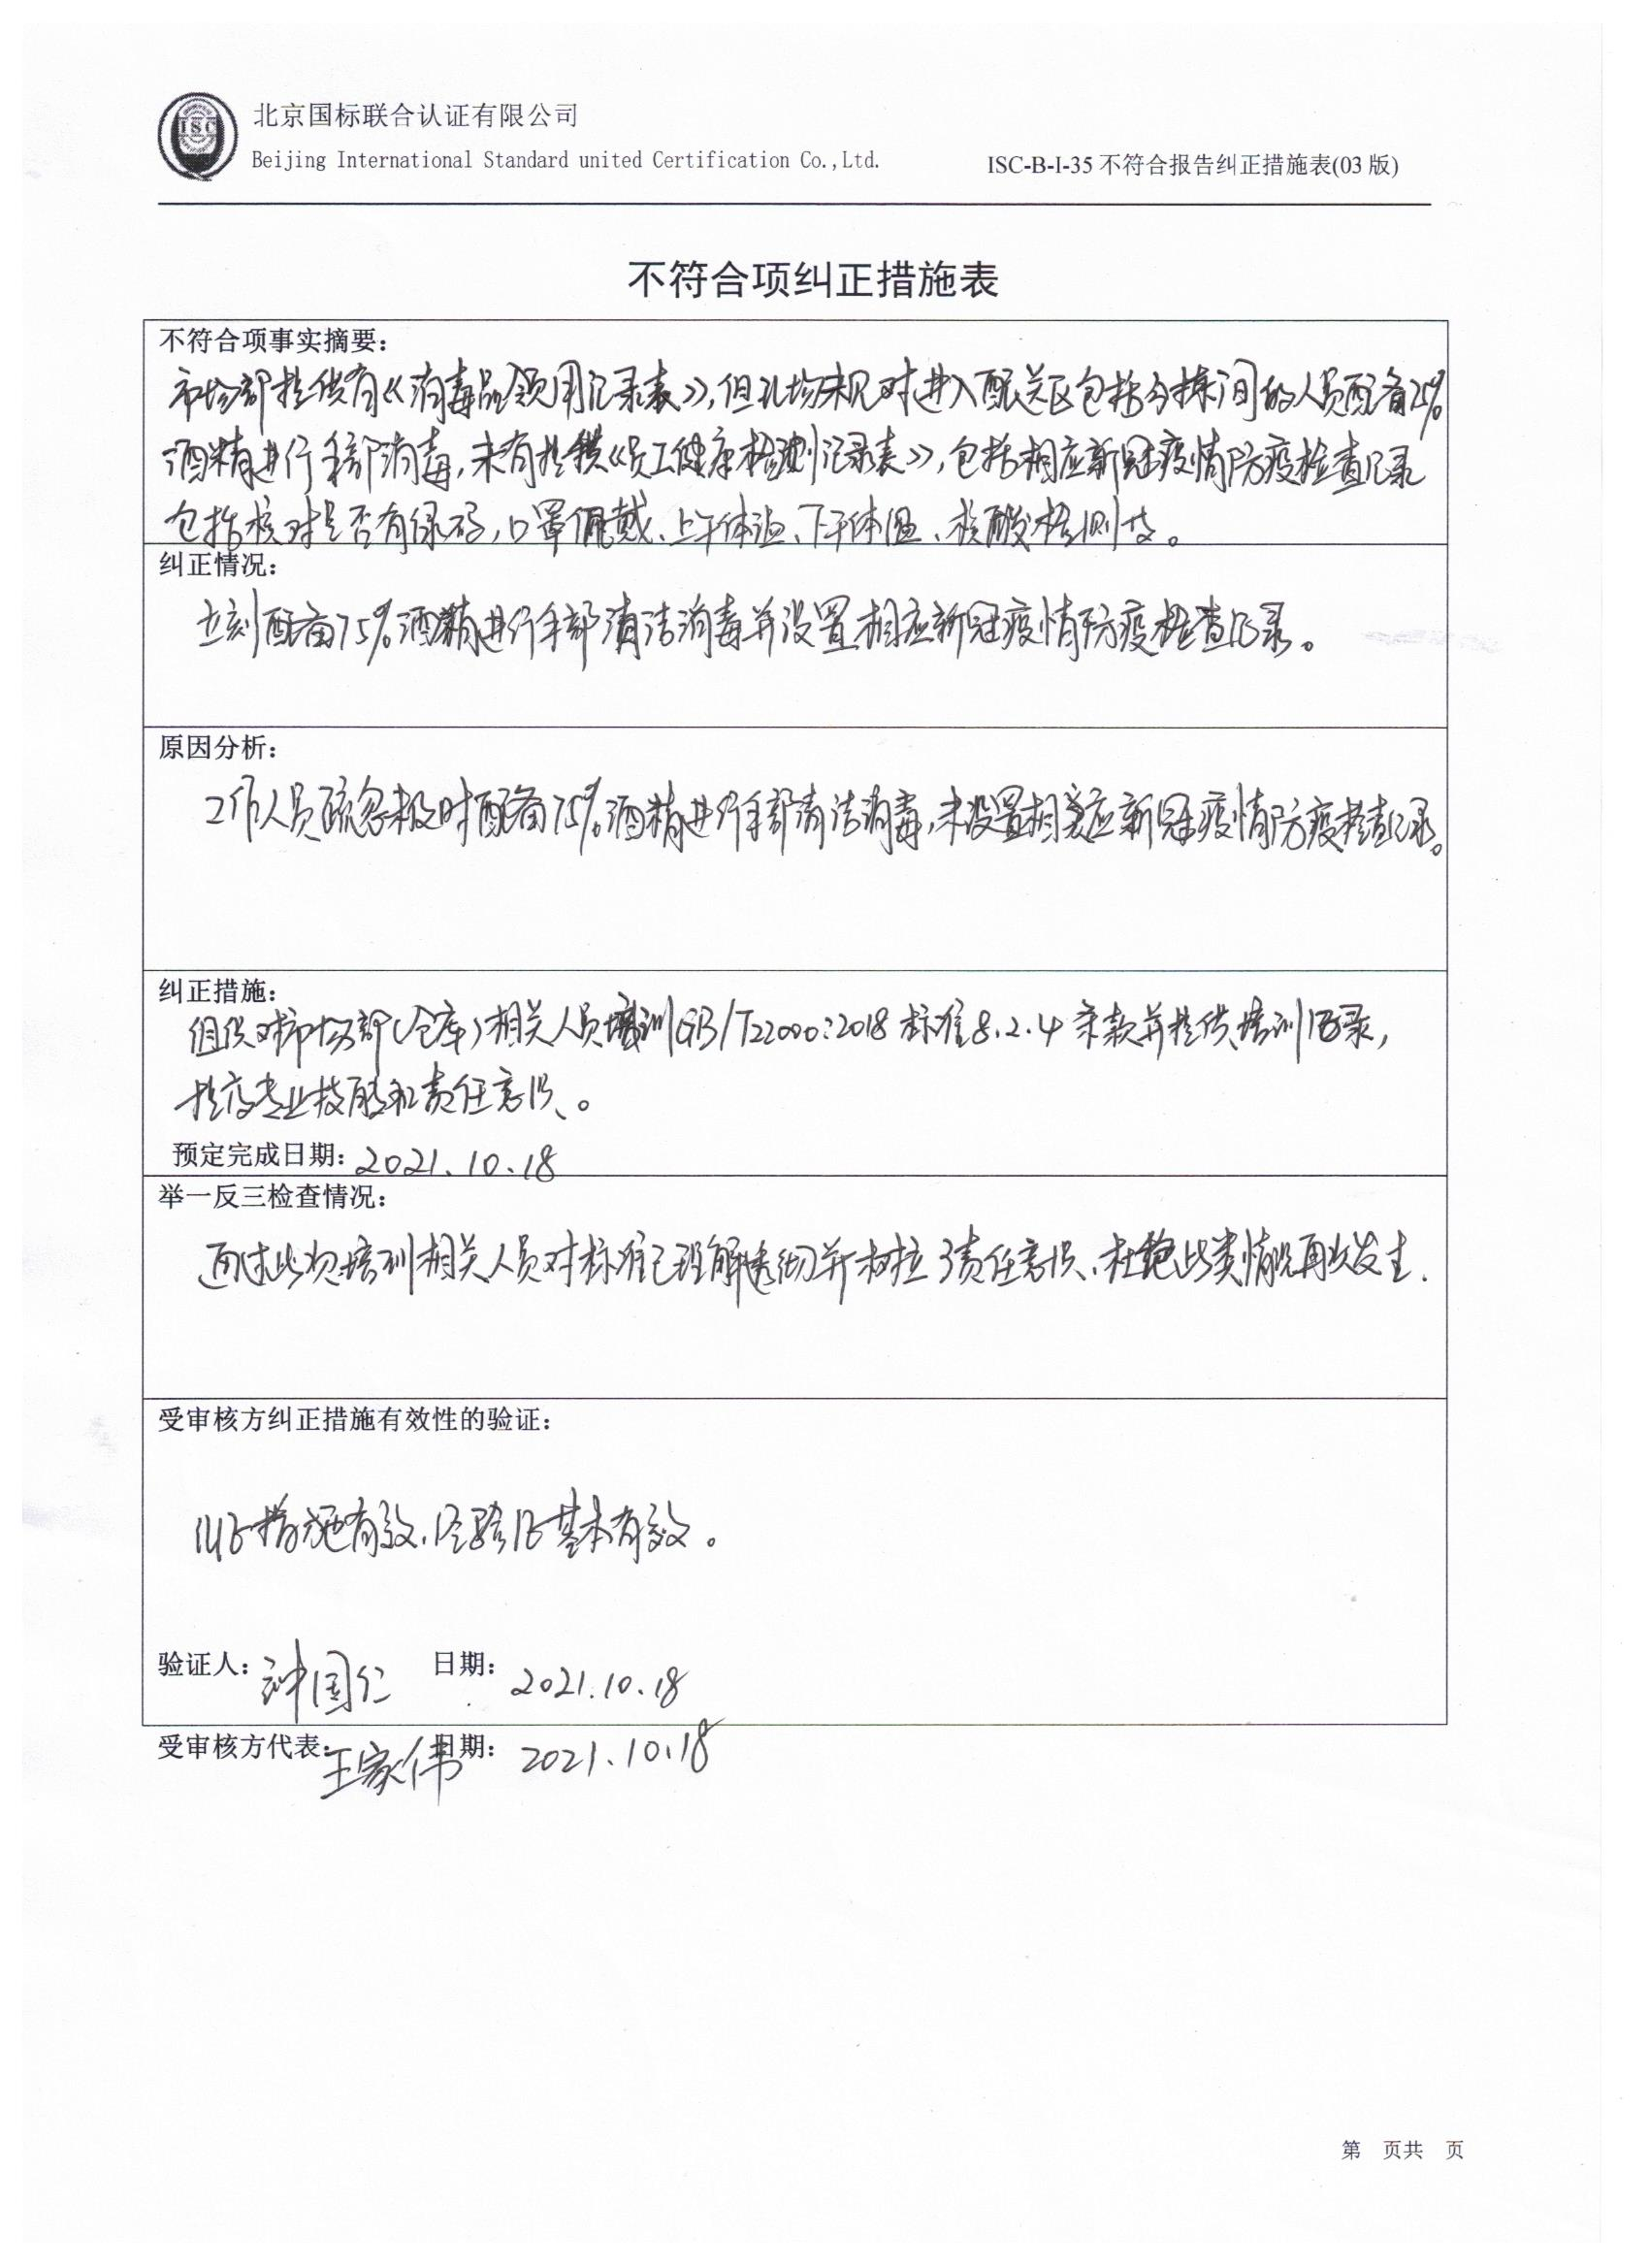 北京国标联合认证有限公司
Beijing International Standard united Certification Co.,Ltd.
ISC-B-I-35 不符合报告纠正措施表(03 版)
ISC
不符合项纠正措施表
不符合项事实摘要:
市场部提供有《消毒品领用记录表》,但现场未见对进入配送区包括分拣间的人员配备75%
酒精进行手部消毒,未有提供《员工健康检测记录表》,包括相应新冠疫情防疫检查记录
包括核对是否有绿码,口罩佩戴、上午体温、下午体温、核酸检测等。
纠正情况:
立刻配备75%酒精进行手部清洁消毒并设置相应新冠疫情防疫检查记录。
原因分析:
工作人员疏忽未及时配备75%酒精进行手部清洁消毒,未设置相应新冠疫情防疫检查记录。
纠正措施:
组织对市场部(仓库)相关人员培训GB/T22000:2018标准8.2.4条款并提供培训记录,
提高专业技能和责任意识。
预定完成日期: 2021.10.18
举一反三检查情况:
通过此次培训相关人员对标准已理解透彻并树立了责任意识、杜绝此类情况再次发生.
受审核方纠正措施有效性的验证:
措施有效,经验证基本有效。
验证人: 钟国仁 日期: 2021.10.18
受审核方代表: 王家伟 日期: 2021.10.18
第 页共 页